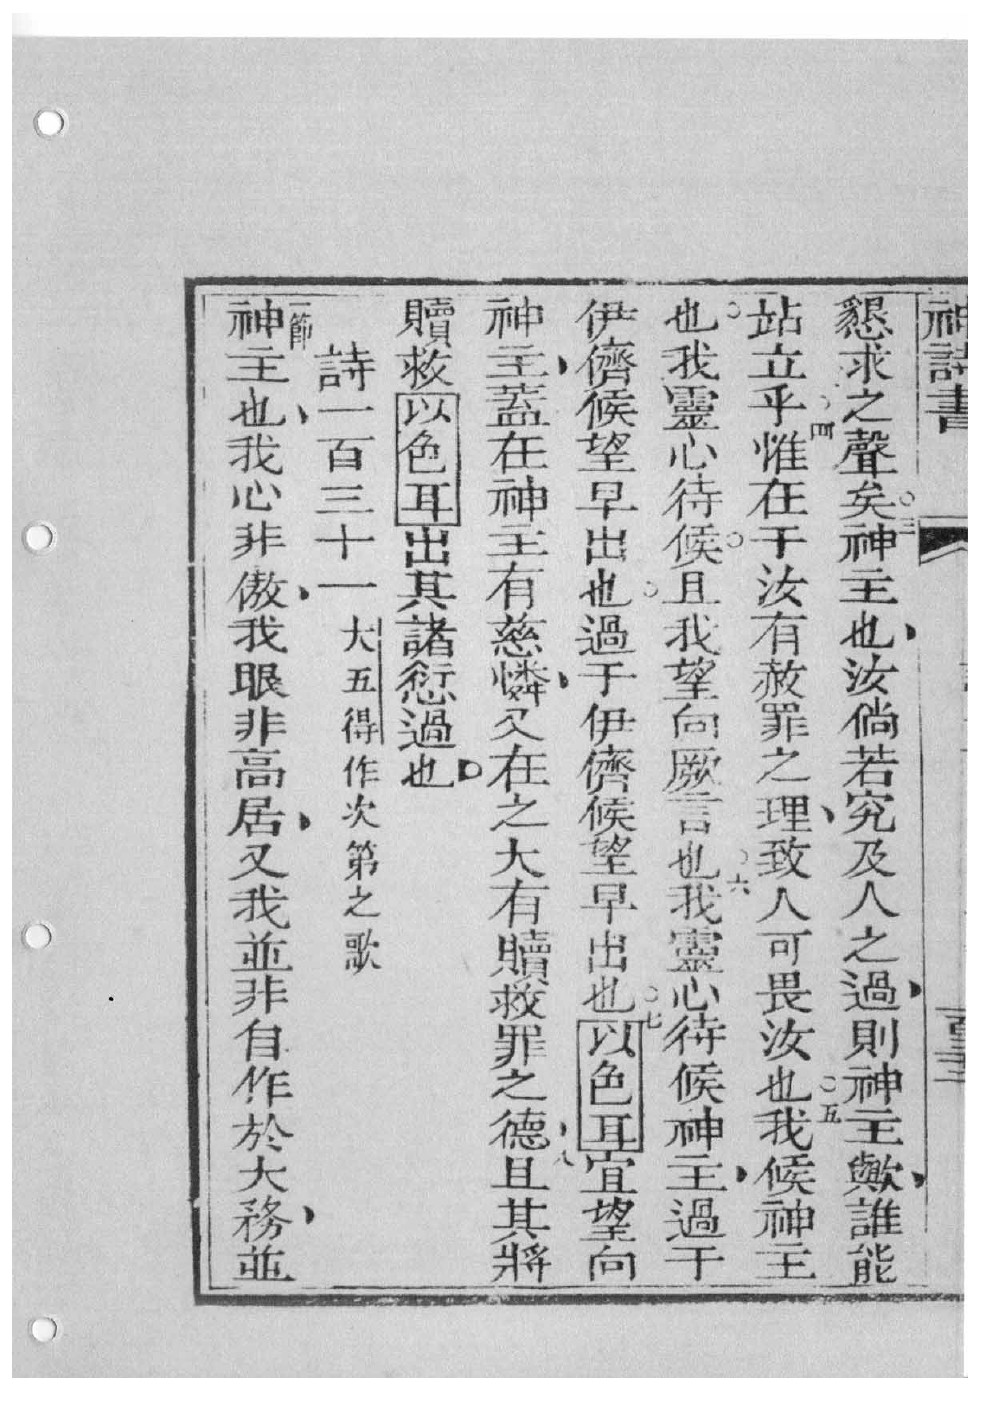 神詩書
懇求之聲矣○三神主也汝倘若究及人之過則神主歟誰能
站立乎○四惟在于汝有赦罪之理致人可畏汝也○五我候神主
也我靈心待候且我望向厥言也○六我靈心待候神主過于
伊儕候望早出也過于伊儕候望早出也○七以色耳宜望向
神主蓋在神主有慈憐又在之大有贖救罪之德八且其將
贖救以色耳出其諸愆過也
詩一百三十一 大五得作次第之歌
一節神主也我心非傲我眼非高居又我並非自作於大務並